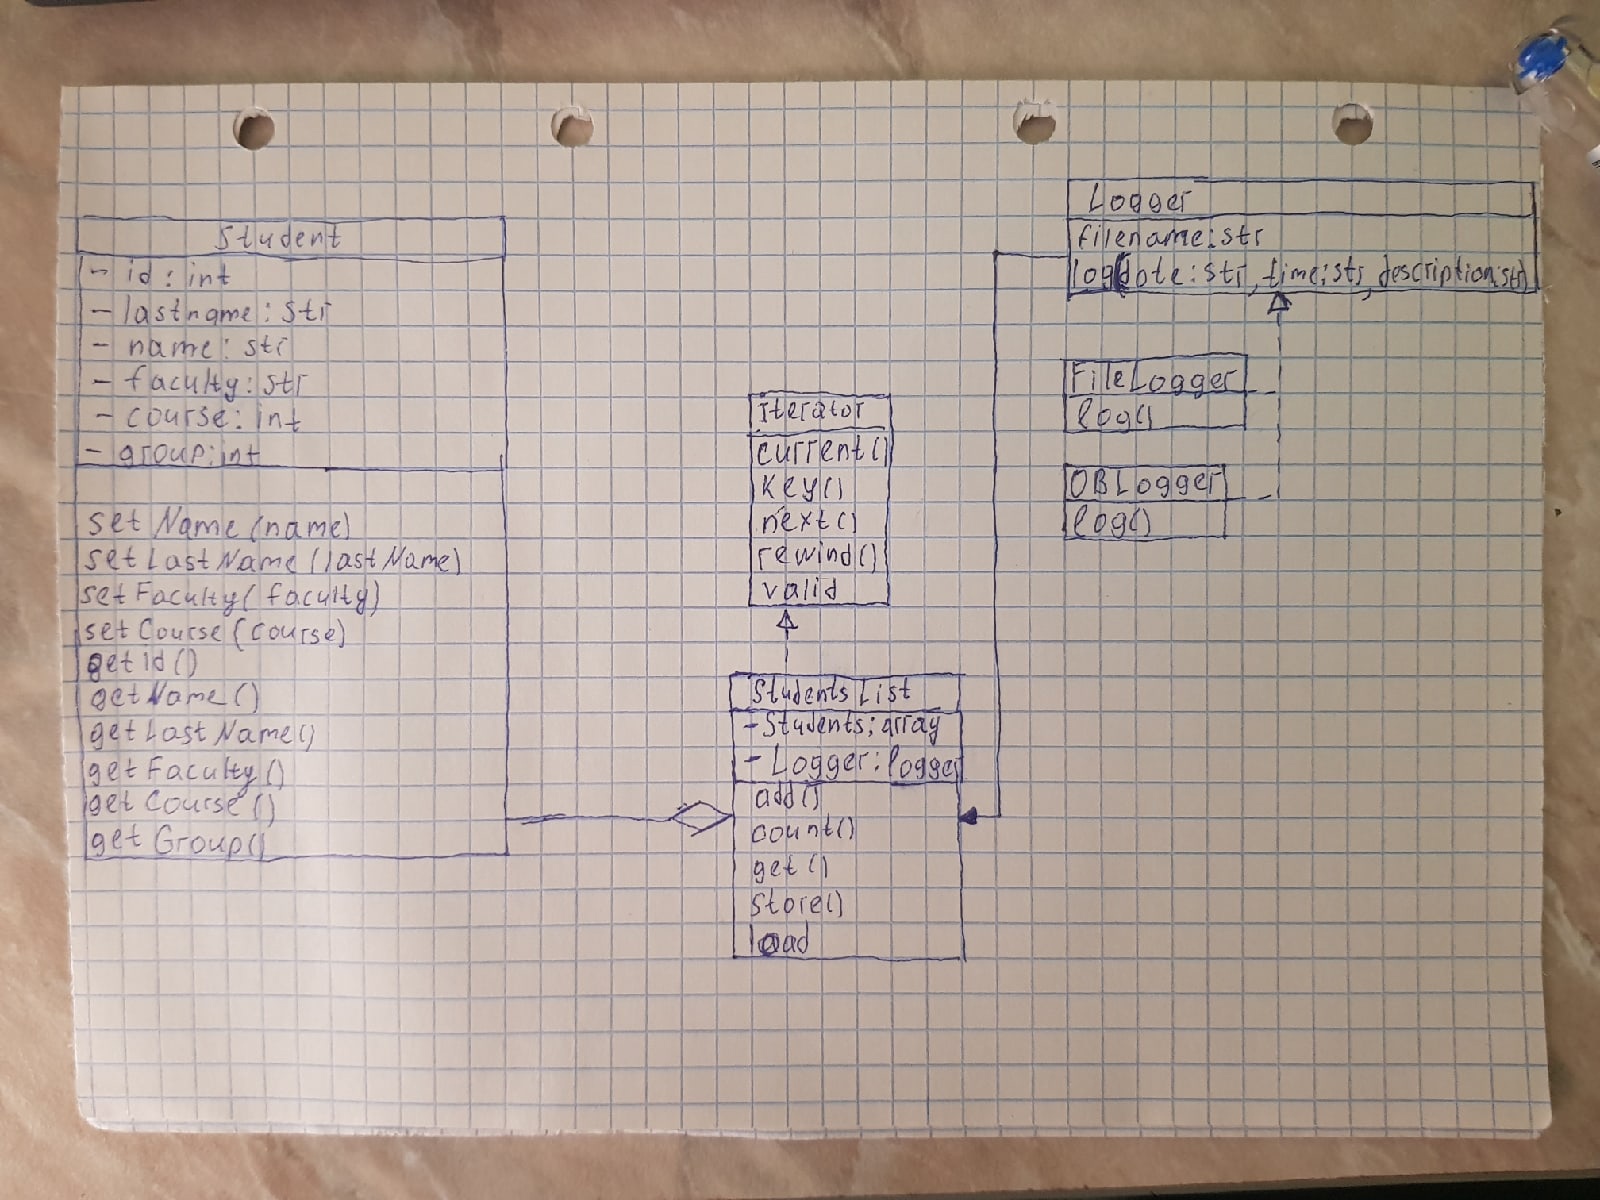 Student
- id: int
- lastname: str
- name: str
- faculty: str
- course: int
- group: int
set Name (name)
set Last Name (last Name)
set Faculty( faculty)
set Course (course)
get id ()
get Name ()
get Last Name()
get Faculty ()
get Course ()
get Group()
iterator
current()
key()
next()
rewind()
valid
Students List
- Students: array
- Logger: logger
add()
count()
get ()
Store()
load
Logger
filename: str
log(dote: str, time: str, description: str)
FileLogger
log()
OBLogger
log()